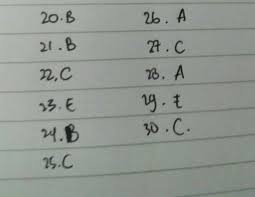 20. B
21. B
22, C
23. E
24. B
25. C
26. A
27. C
28. A
29. E
30. C.